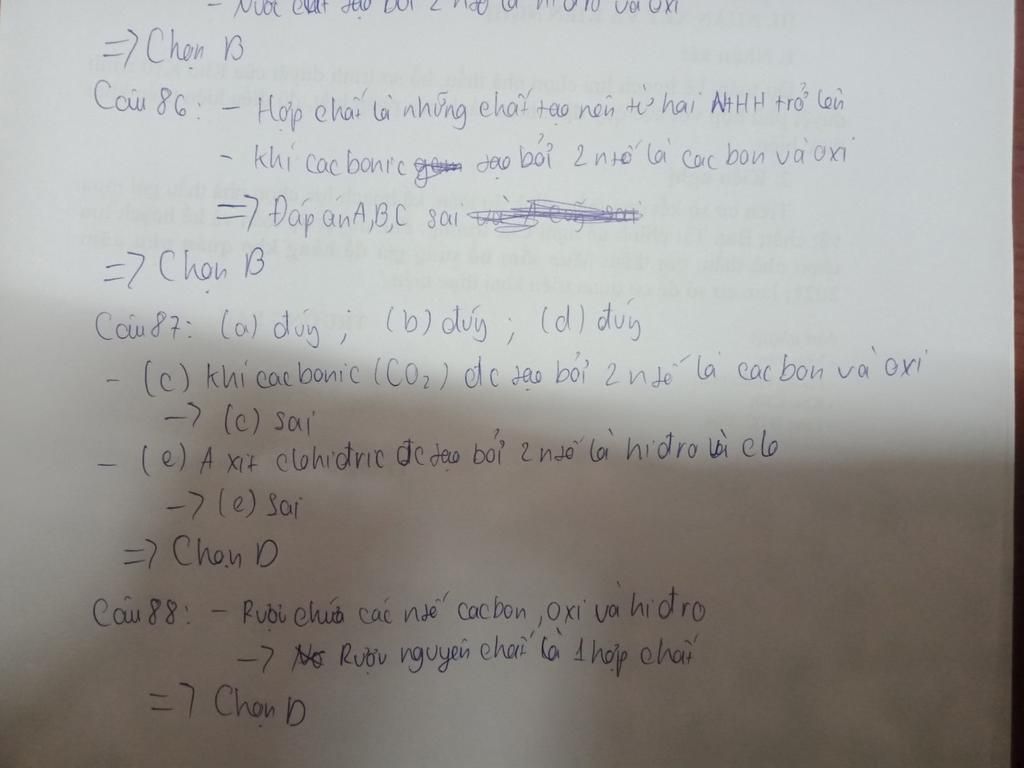 - Nước chất tạo bởi 2 ntố là hiđro và oxi
=> Chọn B
Câu 86: - Hợp chất là những chất tạo nên từ hai NTHH trở lên
- khí cacbonic tạo bởi 2 ntố là cacbon và oxi
=> Đáp án A, B, C sai
=> Chọn B
Câu 87: (a) đúg ; (b) đúg ; (d) đúg
- (c) khí cacbonic (CO2) đc tạo bởi 2 ntố là cacbon và oxi
-> (c) sai
- (e) Axit clohiđric đc tạo bởi 2 ntố là hiđro và clo
-> (e) sai
=> Chọn D
Câu 88: - Rượu chứa các ntố cacbon, oxi và hiđro
-> Rượu nguyên chất là 1 hợp chất
=> Chọn D